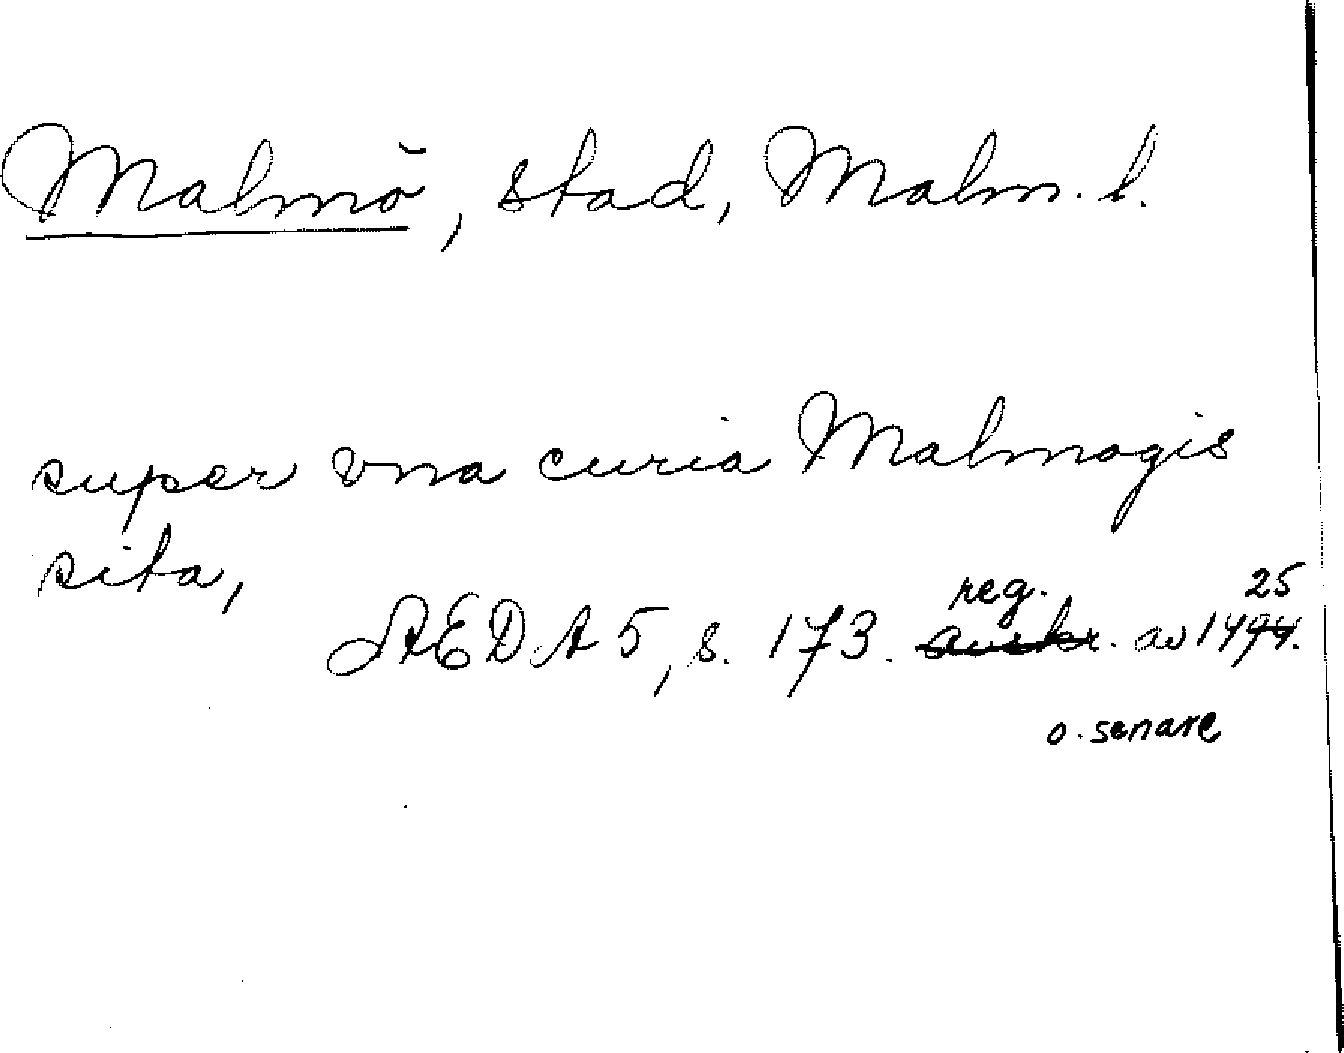 Malmö, stad, Malm. l.
super vna curia Malmogis
sita,
reg. 25
ÆDA 5, s. 173. avskr. av 1494.
o. senare